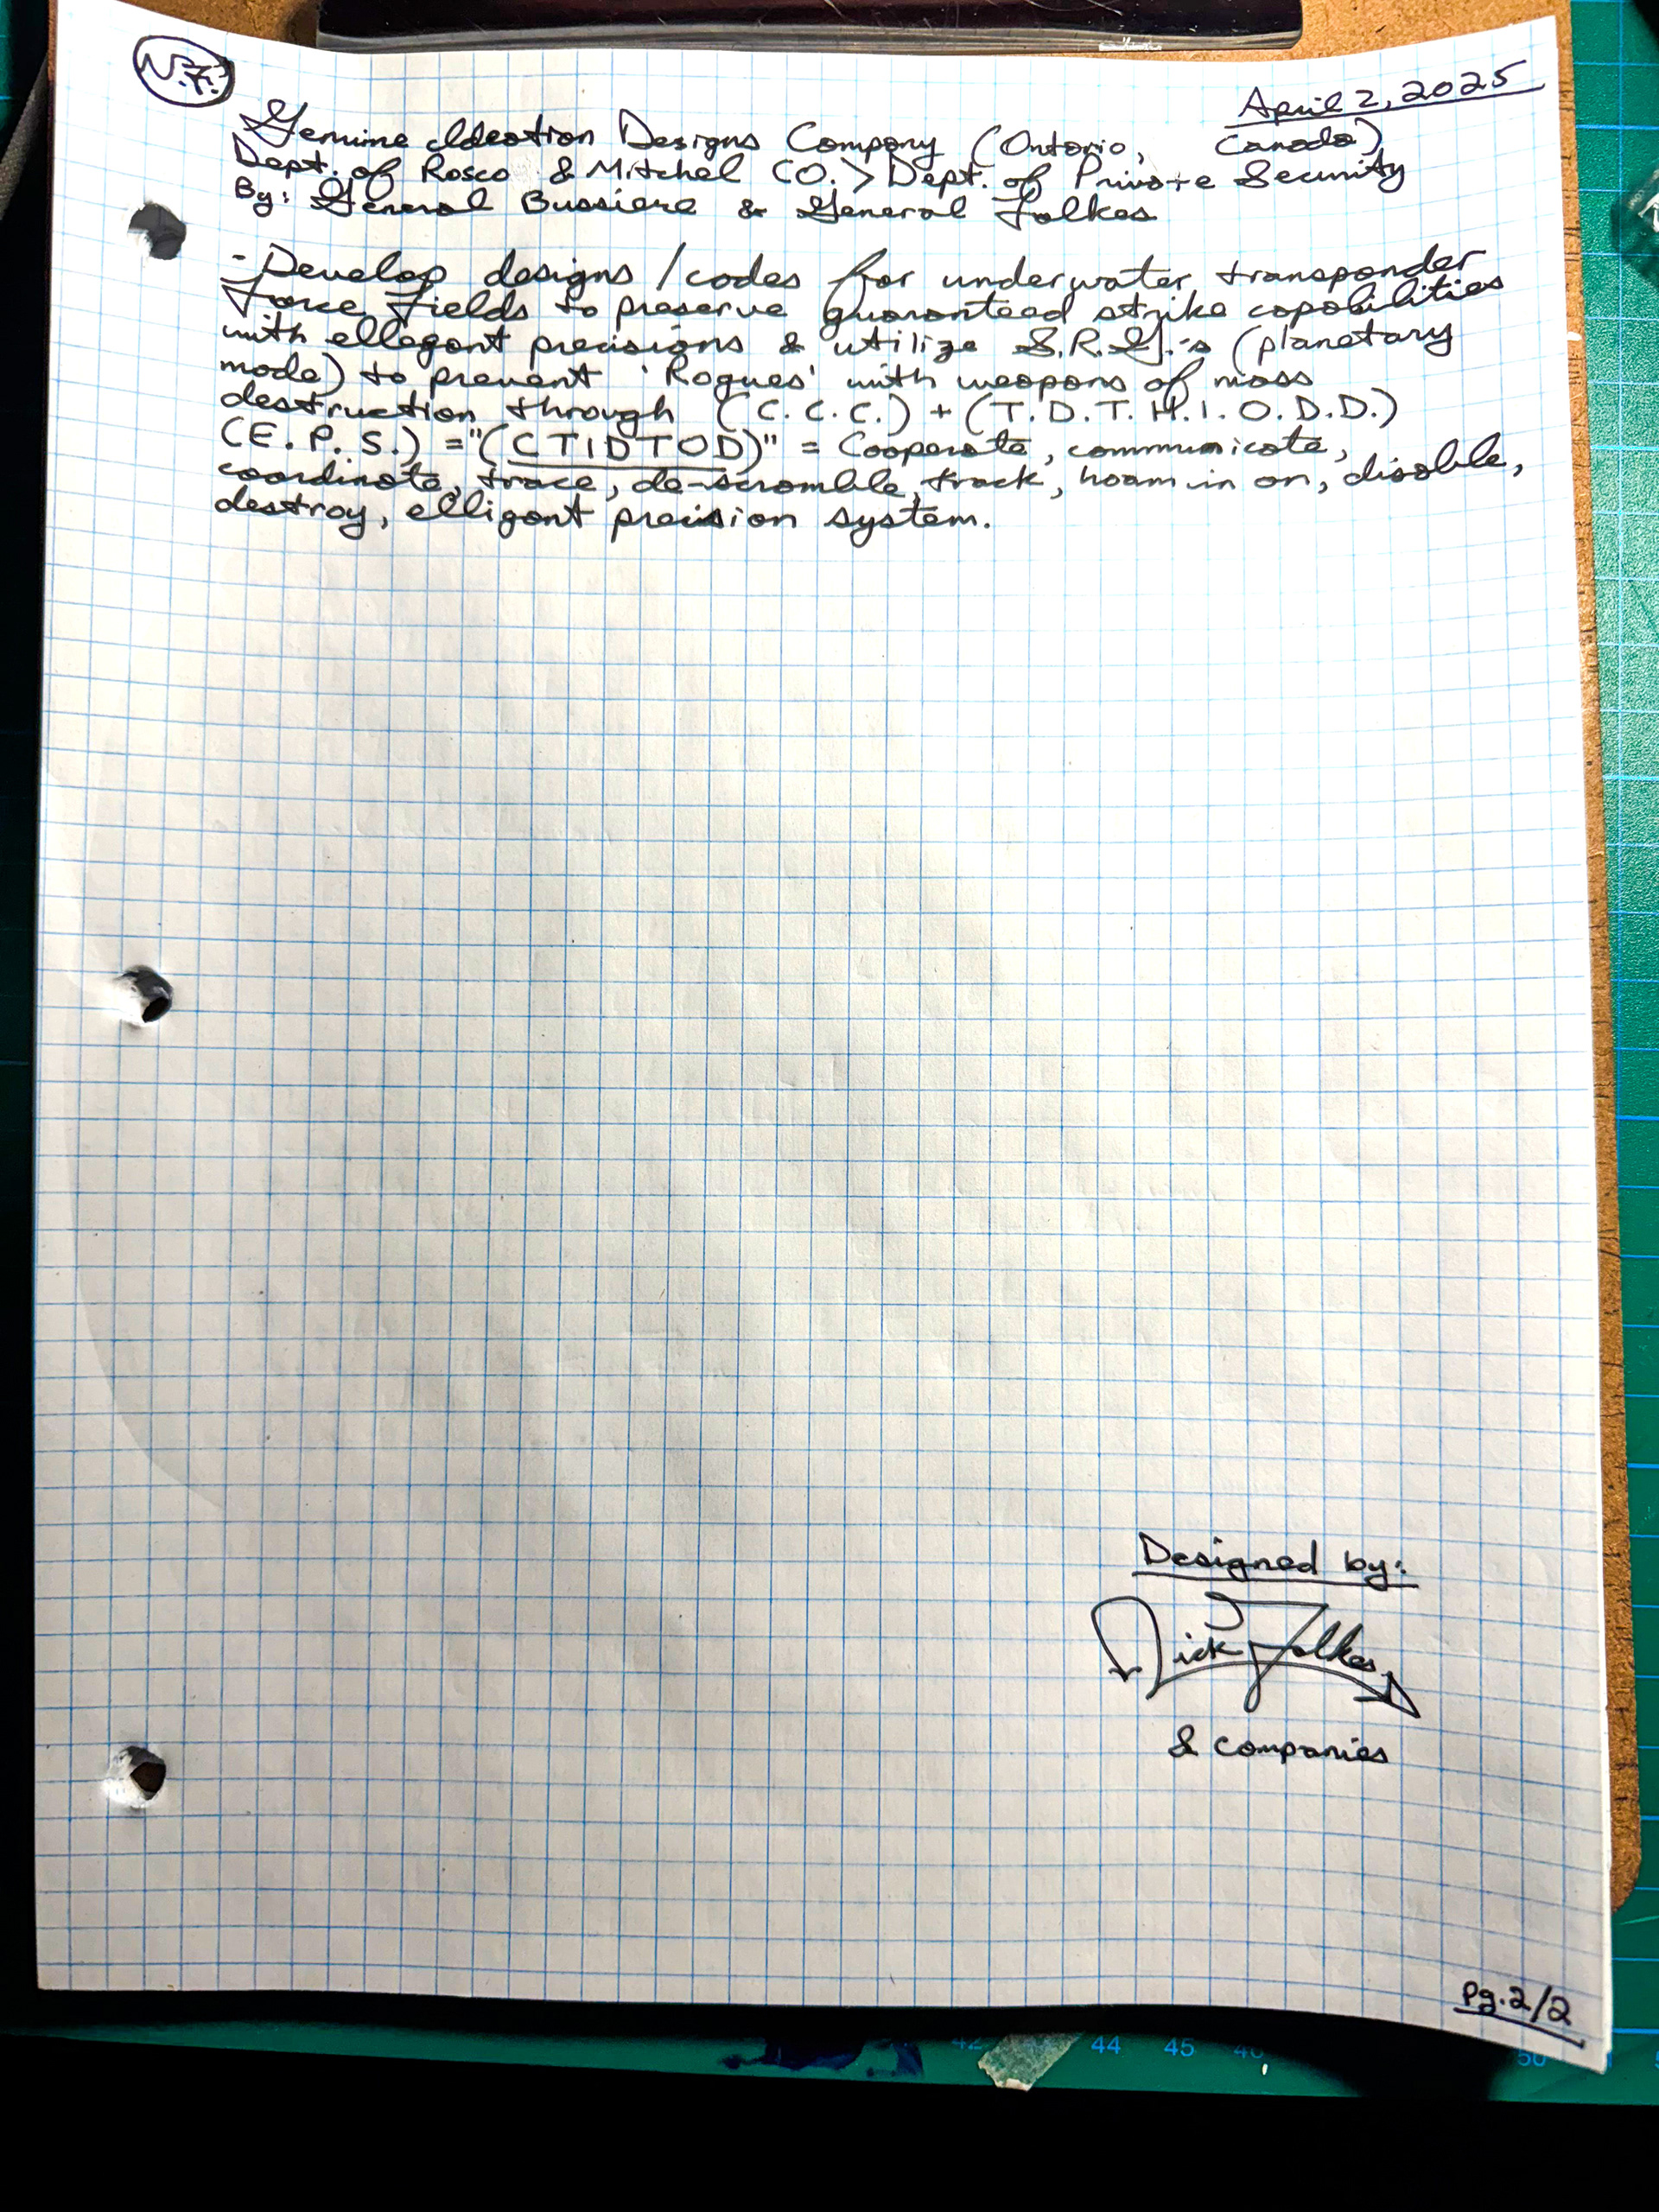 N.F.
April 2, 2025
Genuine Ideation Designs Company (Ontario, Canada)
Dept. of Rosco & Mitchel CO. > Dept. of Private Security
By: General Bussiere & General Folkes
- Develop designs / codes for underwater transponder
Force Fields to preserve guaranteed strike capabilities
with ellegant precisions & utilize S.R.G.'s (planetary
mode) to prevent 'Rogues' with weapons of mass
destruction through (C.C.C.) + (T.D.T.H.I.O.D.D.)
(E.P.S.) ="(CTIDTOD)" = Cooperate, communicate,
coordinate, trace, de-scramble, track, hoam in on, disable,
destroy, elligant precision system.
Designed by:
Nick Folkes
& companies
pg. 2/2
42 44 45 46 50